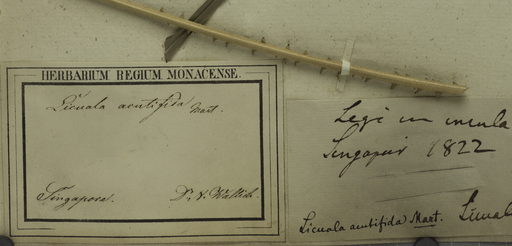 HERBARIUM REGIUM MONACENSE.
Licuala acutifida Mart.
Singapore. Dr. N. Wallich.
Legi in insula
Singapur 1822
Licuala acutifida Mart. Licual